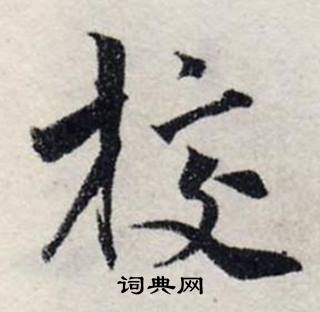 校
词典网